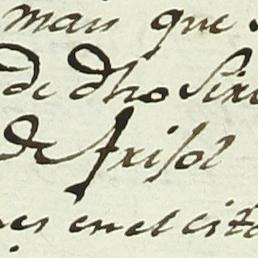 mas que
de dho Sir
de Frisol
es en el cita